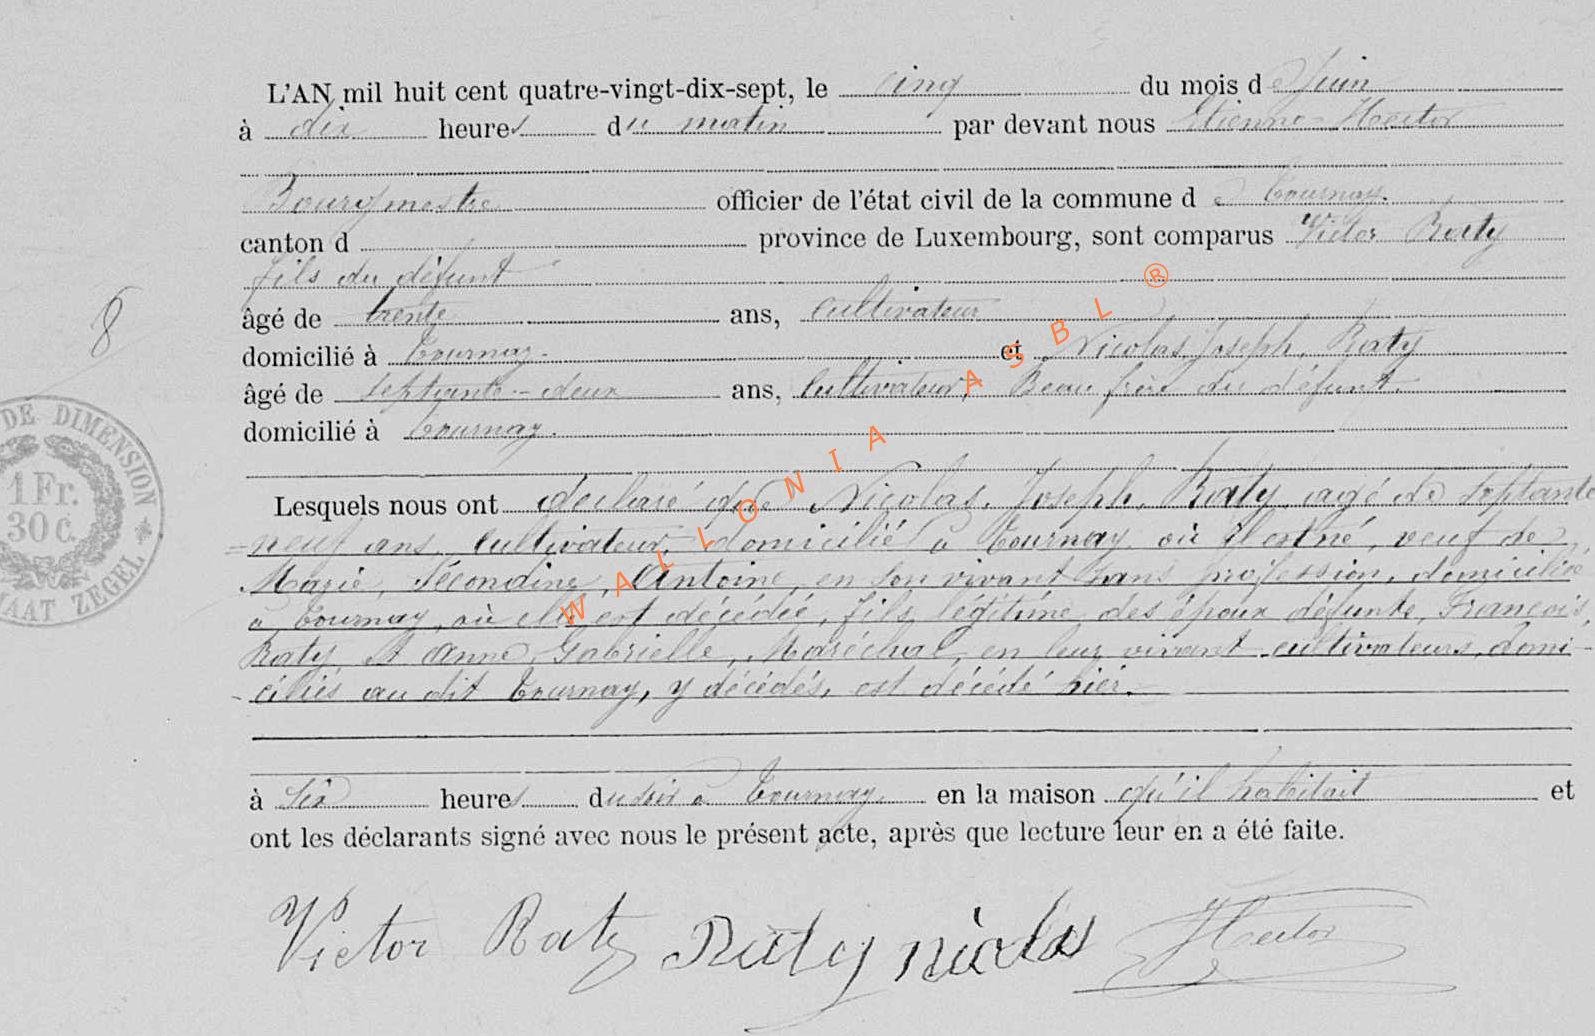 L'AN mil huit cent quatre-vingt-dix-sept, le cinq du mois de Juin
à dix heures du matin par devant nous Etienne-Hector
Bourgmestre officier de l'état civil de la commune de Tournay.
canton d province de Luxembourg, sont comparus Victor Raty
fils du défunt
âgé de trente ans, cultivateur
domicilié à Tournay. et Nicolas Joseph, Raty
âgé de septante-deux ans, cultivateur, Beau frère du défunt.
domicilié à Tournay.
Lesquels nous ont déclaré que Nicolas, Joseph, Raty, agé de septante
neuf ans, cultivateur, domicilié à Tournay où il est né, veuf de
Marie, Sécondine, Antoine, en son vivant sans profession, domiciliée
à Tournay, où elle est décédée, fils légitime des époux défunts, François,
Raty et Anne, Gabrielle, Maréchal, en leur vivant cultivateurs, domi-
ciliés au dit Tournay, y décédés, est décédé hier.
à six heures du soir à Tournay, en la maison qu'il habitait et
ont les déclarants signé avec nous le présent acte, après que lecture leur en a été faite.
Victor Raty Raty nicolas Hector
8
DE DIMENSION
1 Fr.
30 c.
MAAT ZEGEL
WALLONIA ASBL ®